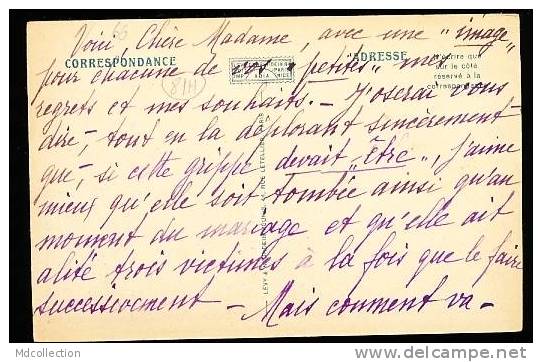 Voici, Chère Madame, avec une "image"
CORRESPONDANCE
ADRESSE
N'écrire que
sur le côté
réservé à la
correspondance
pour chacune de vos "petites" mes
regrets et mes souhaits. - J'oserai vous
dire, tout en la déplorant sincèrement
que, si cette grippe devait "être", j'aime
mieux qu'elle soit tombée ainsi qu'au
moment du mariage et qu'elle ait
alité trois victimes à la fois que le faire
successivement - Mais comment va-
Mdcollection
http://mdcollection.delcampe.net